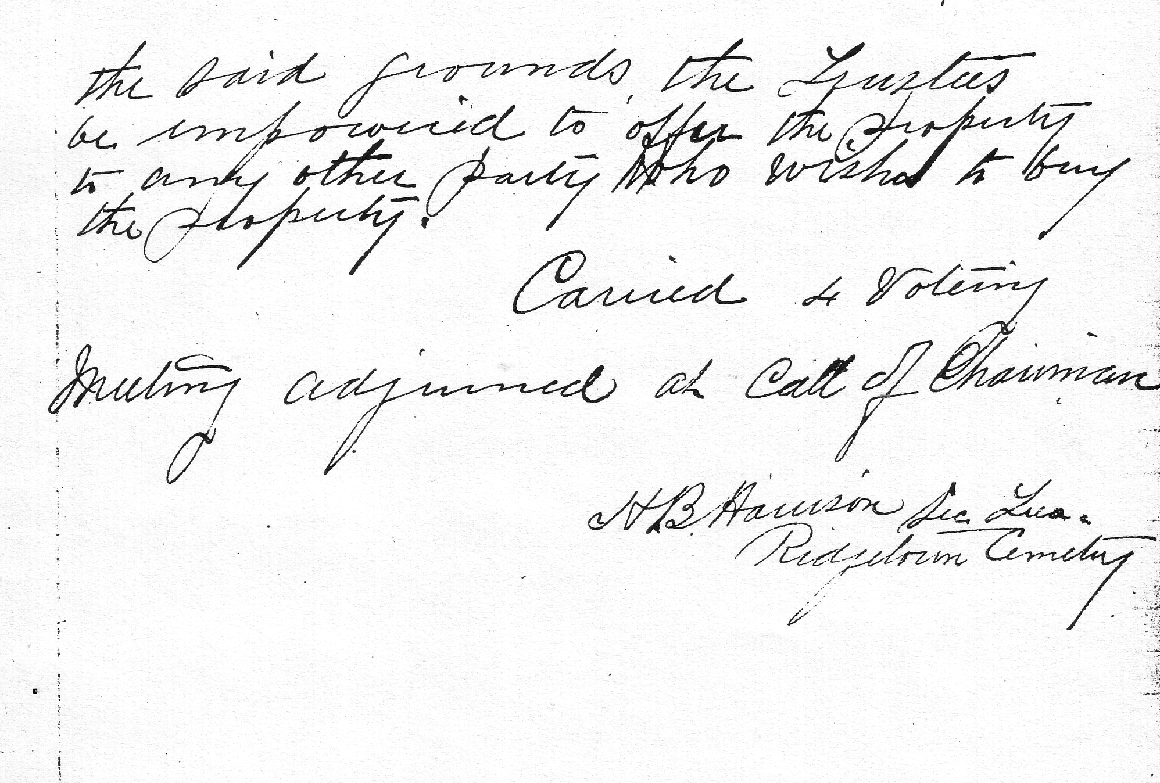 the said grounds, the Trustees
be empowered to offer the property
to any other party who wishes to buy
the property.
Carried 4 Voting
Meeting adjurned at Call of Chairman
H.B. Harrison Sec Trea.
Ridgetown Cemetery